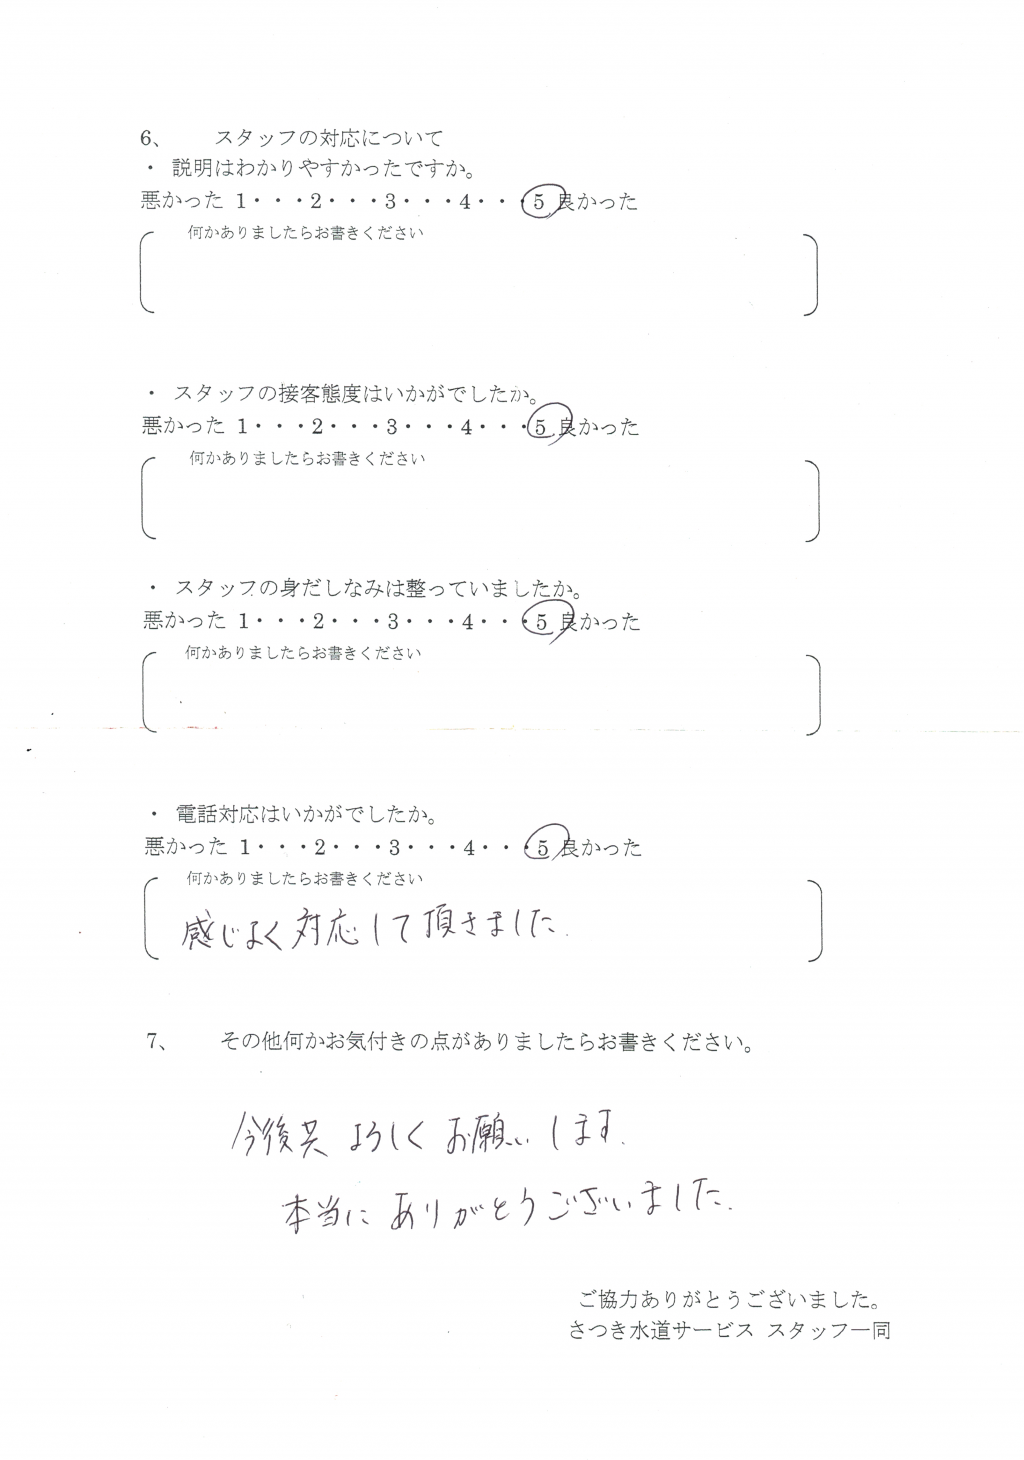 6、 スタッフの対応について
・ 説明はわかりやすかったですか。
悪かった 1・・・2・・・3・・・4・・・5 良かった
何かありましたらお書きください
・ スタッフの接客態度はいかがでしたか。
悪かった 1・・・2・・・3・・・4・・・5 良かった
何かありましたらお書きください
・ スタッフの身だしなみは整っていましたか。
悪かった 1・・・2・・・3・・・4・・・5 良かった
何かありましたらお書きください
・ 電話対応はいかがでしたか。
悪かった 1・・・2・・・3・・・4・・・5 良かった
何かありましたらお書きください
感じよく対応して頂きました.
7、 その他何かお気付きの点がありましたらお書きください。
今後共 よろしく お願いします.
本当に ありがとうございました.
ご協力ありがとうございました。
さつき水道サービス スタッフ一同